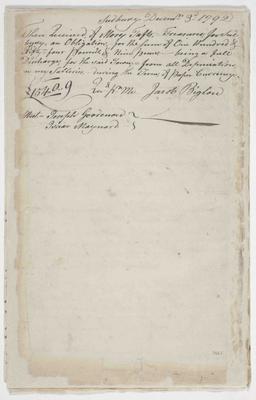 Sudbury Decemr 3d 1792
Then Received of Mosy Taft, Treasurer for sd
an Obligation for the sum of One Hundred &
Fifty four Pounds & Nine pence — being a full
Discharge for the said Town — from all Depreciation
in my during the Time of Paper Currency
£154.0.9 Pr Me Jacob Biglow
Wit— Joseph Goodenow
Isaac Maynard